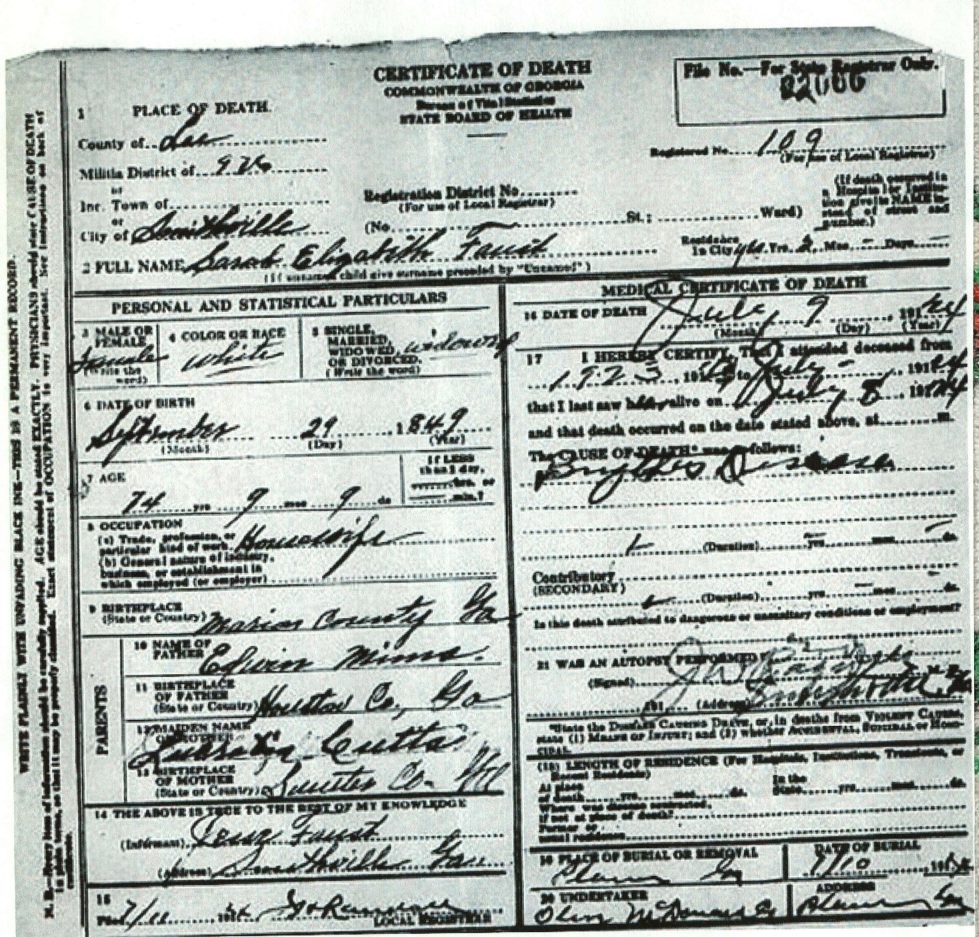 CERTIFICATE OF DEATH
COMMONWEALTH OF GEORGIA
Bureau of Vital Statistics
STATE BOARD OF HEALTH
File No.—For State Registrar Only.
1 PLACE OF DEATH.
County of Lee
Registered No. 109
(For use of Local Registrar)
Militia District of 926
or
Inc. Town of
or
City of Smithville
Registration District No
(For use of Local Registrar)
(No. St.; Ward)
(If death occurred in a Hospital or Institution give its NAME instead of street and number.)
Residence In City yes Yrs. 2 Mos - Days -
2 FULL NAME Sarah Elizabeth Faust
(If unnamed child give surname preceded by "Unnamed")
PERSONAL AND STATISTICAL PARTICULARS
3 MALE OR FEMALE
Female
(Write the word)
4 COLOR OR RACE
White
5 SINGLE, MARRIED, WIDOWED, OR DIVORCED.
(Write the word)
widowed
6 DATE OF BIRTH
September 29 1849
(Month) (Day) (Year)
7 AGE
74 yrs 9 mos 9 ds
If LESS than 1 day, hrs. or min.?
8 OCCUPATION
(a) Trade, profession, or particular kind of work Housewife
(b) General nature of industry, business, or establishment in which employed (or employer)
9 BIRTHPLACE
(State or Country) Marion County Ga
PARENTS
10 NAME OF FATHER Edwin Mims.
11 BIRTHPLACE OF FATHER
(State or Country) Houston Co., Ga
12 MAIDEN NAME OF MOTHER
Cutts
13 BIRTHPLACE OF MOTHER
(State or Country) Sumter Co.
14 THE ABOVE IS TRUE TO THE BEST OF MY KNOWLEDGE
(Informant) Faust
(Address) Smithville Ga
15
Filed 7/10 1924
LOCAL REGISTRAR
MEDICAL CERTIFICATE OF DEATH
16 DATE OF DEATH
July 9 1924
(Month) (Day) (Year)
17 I HEREBY CERTIFY, That I attended deceased from
1923, 191 to July - 1924
that I last saw her alive on July 8 1924
and that death occurred on the date stated above, at m.
The CAUSE OF DEATH* was as follows:
Brights Disease
(Duration) yrs mos ds.
Contributory
(SECONDARY)
(Duration) yrs mos ds.
Is this death attributed to dangerous or unsanitary conditions or employment?
21 WAS AN AUTOPSY PERFORMED
(Signed)
191 (Address) Smithville
*State the Disease Causing Death, or, in deaths from Violent Causes, state (1) Means of Injury; and (2) whether Accidental, Suicidal, or Homicidal.
(18) LENGTH OF RESIDENCE (For Hospitals, Institutions, Transients, or Recent Residents)
At place of death yrs. mos. ds. In the State yrs. mos. ds.
Where was disease contracted,
If not at place of death?
Former or usual residence
19 PLACE OF BURIAL OR REMOVAL
Plains Ga
DATE OF BURIAL
7/10
20 UNDERTAKER
ADDRESS
Plains Ga
WRITE PLAINLY WITH UNFADING BLACK INK—THIS IS A PERMANENT RECORD.
N. B.—Every item of information should be carefully supplied. AGE should be stated EXACTLY. PHYSICIANS should state CAUSE OF DEATH in plain terms, so that it may be properly classified. Exact statement of OCCUPATION is very important. See instructions on back of certificate.